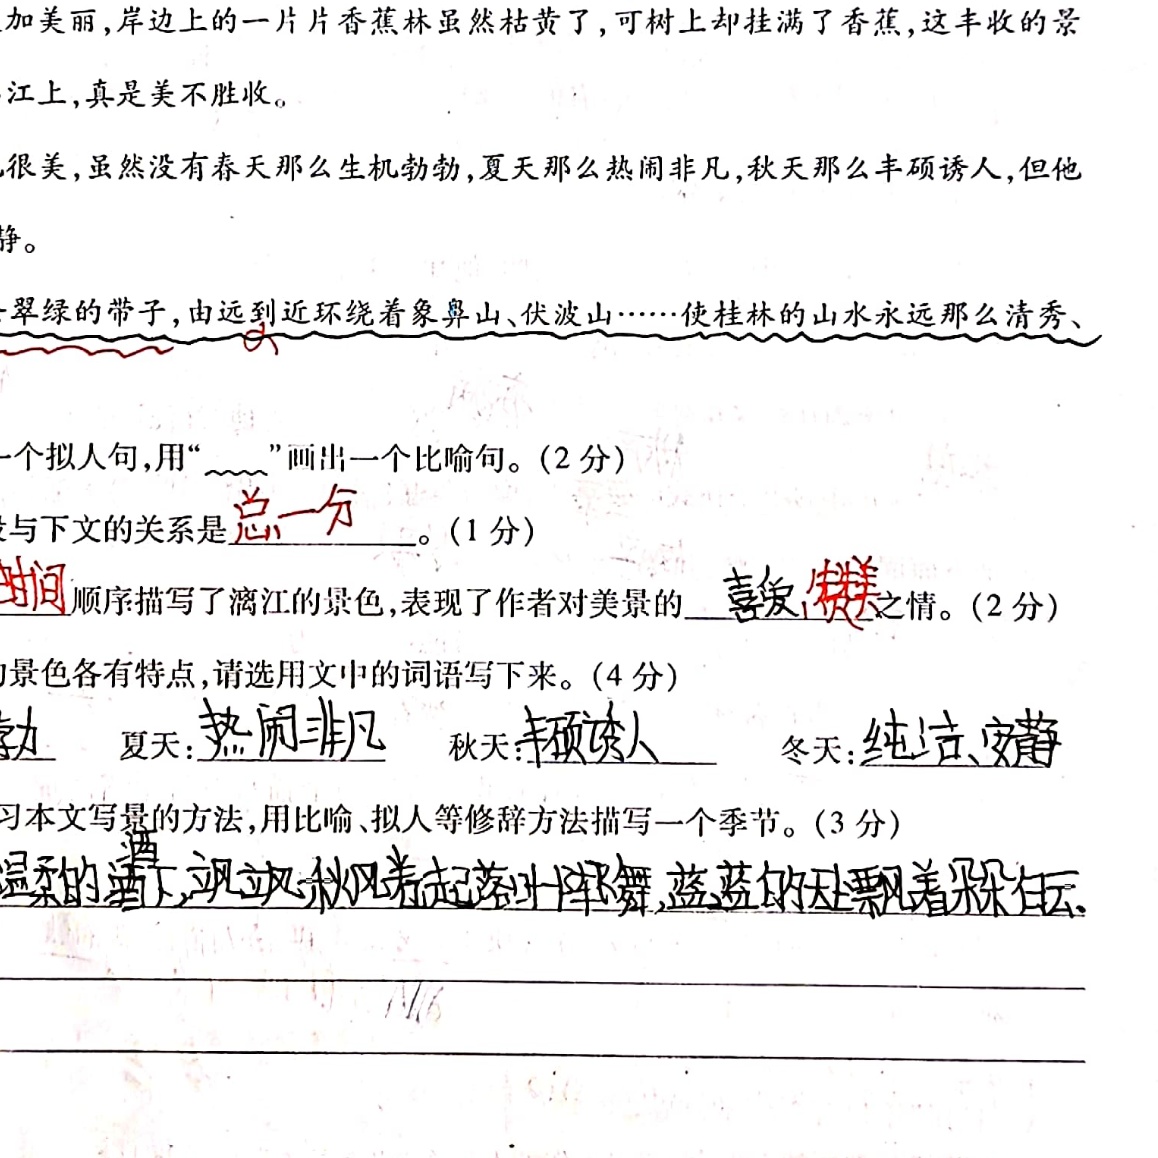 加美丽,岸边上的一片片香蕉林虽然枯黄了,可树上却挂满了香蕉,这丰收的景
江上,真是美不胜收。
很美,虽然没有春天那么生机勃勃,夏天那么热闹非凡,秋天那么丰硕诱人,但他
静。
翠绿的带子,由远到近环绕着象鼻山、伏波山……使桂林的山水永远那么清秀、
一个拟人句,用“﹏﹏”画出一个比喻句。(2 分)
与下文的关系是总一分。(1 分)
时间顺序描写了漓江的景色,表现了作者对美景的喜爱、赞美之情。(2 分)
景色各有特点,请选用文中的词语写下来。(4 分)
勃 夏天:热闹非凡 秋天:丰硕诱人 冬天:纯洁、安静
习本文写景的方法,用比喻、拟人等修辞方法描写一个季节。(3 分)
酒
温柔的洒下,飒飒秋风卷起落叶阵飞舞,蓝蓝的天上飘着朵朵白云。